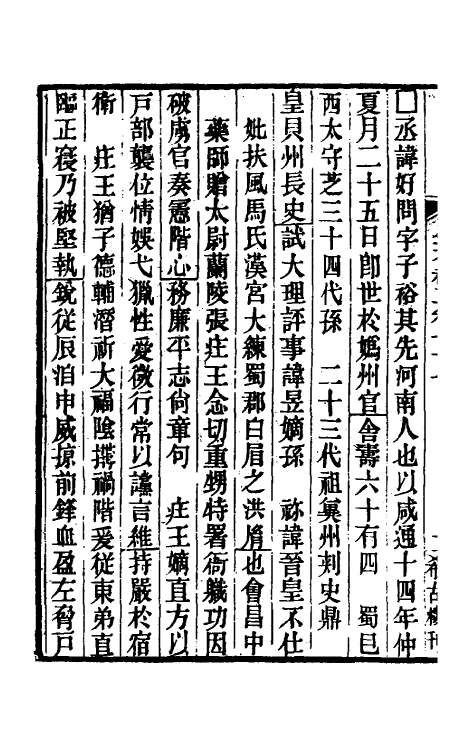 □丞諱好問字子裕其先河南人也以咸通十四年仲
夏月二十五日卽世於媯州官舍壽六十有四　蜀巳
西太守芝三十四代孫　二十三代祖冀州刺史鼎
皇貝州長史試大理評事諱昱嫡孫　祢諱晉皇不仕
妣扶風馬氏漢宮大練蜀郡白眉之洪㣧也會昌中
藥師贈太尉蘭陵張㽵王念切重甥特署衙職功因
破虜官奏憲階心務廉平志尙章句　㽵王嫡直方以
戸部襲位情娛弋獵性愛微行常以讜言維持嚴於宿
衞　㽵王猶子德輔潛祈大福陰搆禍階爰從東弟直
臨正寢乃被堅執銳從辰洎申威掠前鋒血盈左脅戸